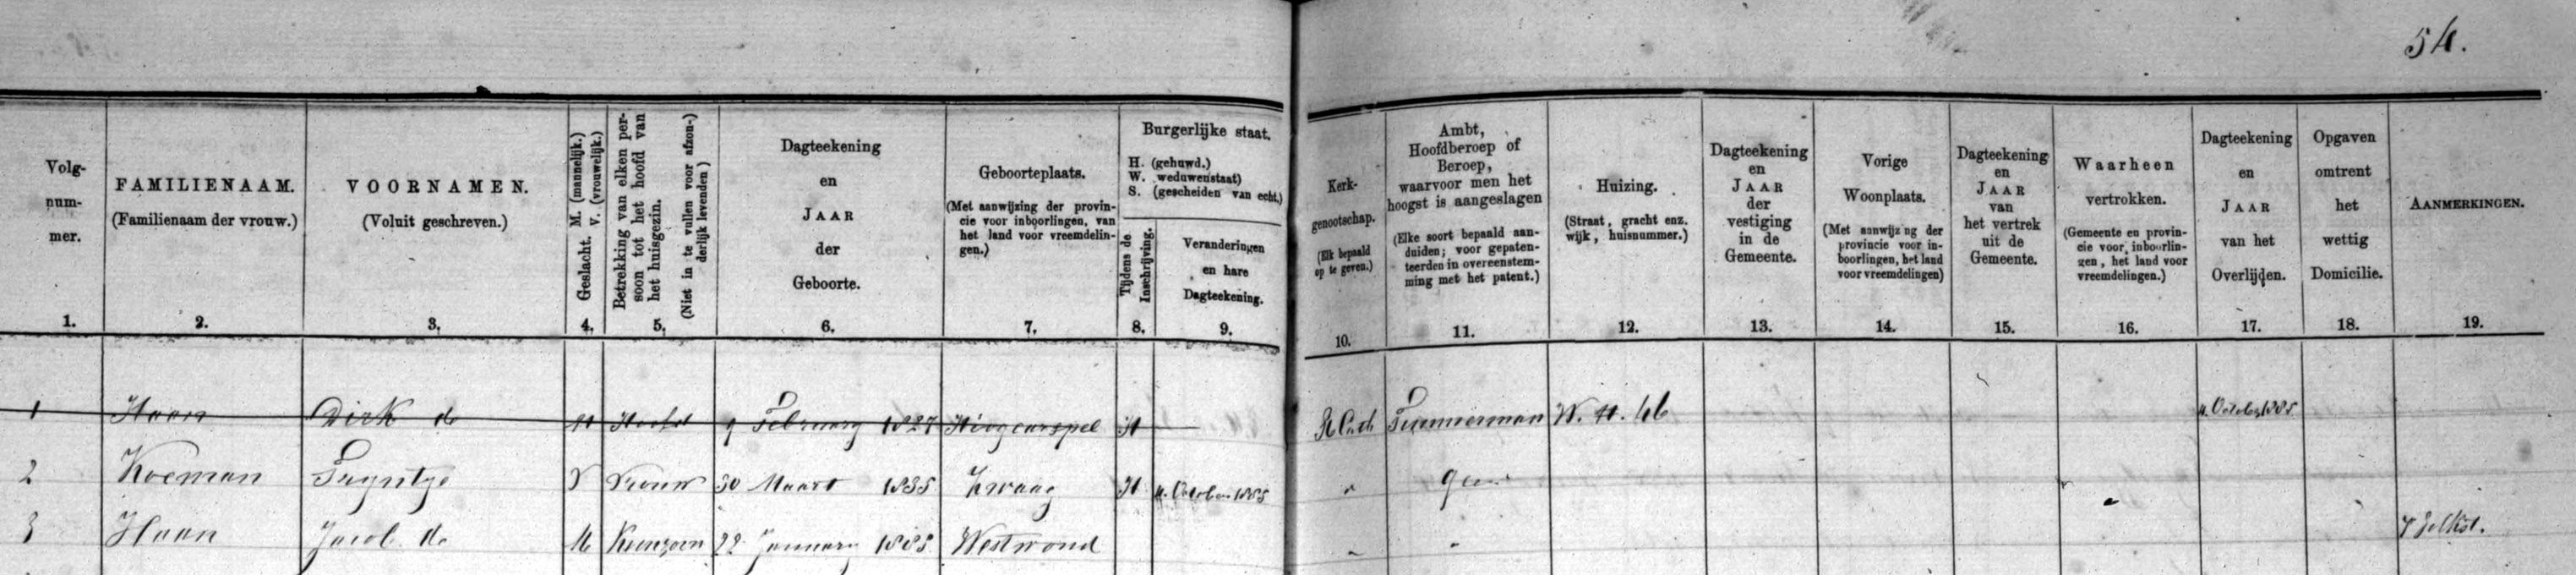 54.
Volg-
num-
mer.
1.
FAMILIENAAM.
(Familienaam der vrouw.)
2.
VOORNAMEN.
(Voluit geschreven.)
3.
Geslacht. M. (mannelijk.)
V. (vrouwelijk.)
4.
Betrekking van elken per-
soon tot het hoofd van
het huisgezin.
(Niet in te vullen voor afzon-
derlijk levenden)
5.
Dagteekening
en
JAAR
der
Geboorte.
6.
Geboorteplaats.
(Met aanwijzing der provin-
cie voor inboorlingen, van
het land voor vreemdelin-
gen.)
7.
Burgerlijke staat.
H. (gehuwd.)
W. weduwenstaat)
S. (gescheiden van echt.)
Tijdens de
Inschrijving.
8.
Veranderingen
en hare
Dagteekening.
9.
Kerk-
genootschap.
(Elk bepaald
op te geven.)
10.
Ambt,
Hoofdberoep of
Beroep,
waarvoor men het
hoogst is aangeslagen
(Elke soort bepaald aan-
duiden; voor gepaten-
teerden in overeenstem-
ming met het patent.)
11.
Huizing.
(Straat, gracht enz.
wijk, huisnummer.)
12.
Dagteekening
en
JAAR
der
vestiging
in de
Gemeente.
13.
Vorige
Woonplaats.
(Met aanwijzing der
provincie voor in-
boorlingen, het land
voor vreemdelingen)
14.
Dagteekening
en
JAAR
van
het vertrek
uit de
Gemeente.
15.
Waarheen
vertrokken.
(Gemeente en provin-
cie voor inboorlin-
gen, het land voor
vreemdelingen.)
16.
Dagteekening
en
JAAR
van het
Overlijden.
17.
Opgaven
omtrent
het
wettig
Domicilie.
18.
AANMERKINGEN.
19.
1 Haan Dirk de M Hoofd 9 February 1827 H R Cath Timmerman W. October 1885
2 Koeman Tryntje V Vrouw 30 Maart 1835 Zwaag H October 1885 " geen
3 Haan Jacob de M Kleinzoon 22 January 1885 Westwoud " "